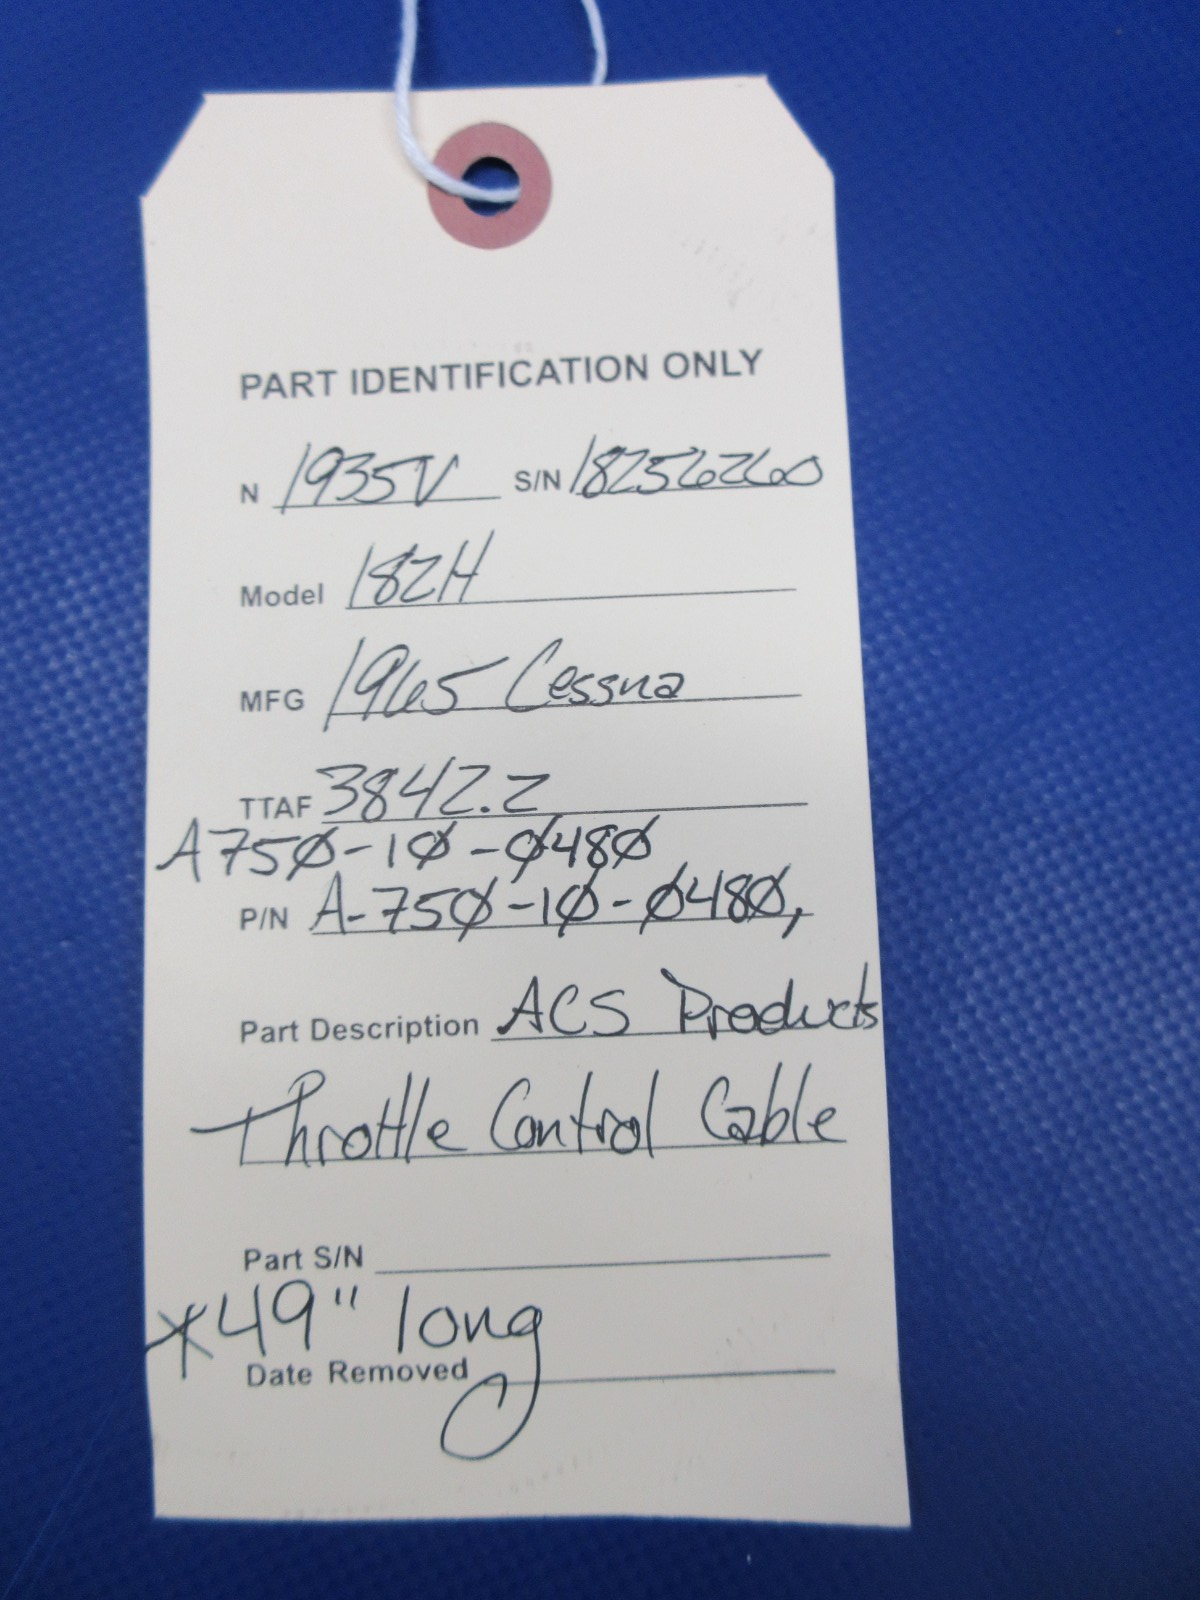 PART IDENTIFICATION ONLY
N 1935V S/N 18256260
Model 182H
MFG 1965 Cessna
TTAF 3842.2
A750-10-0480
P/N A-750-10-0480,
Part Description ACS Products
Throttle Control Cable
Part S/N
*49" long
Date Removed